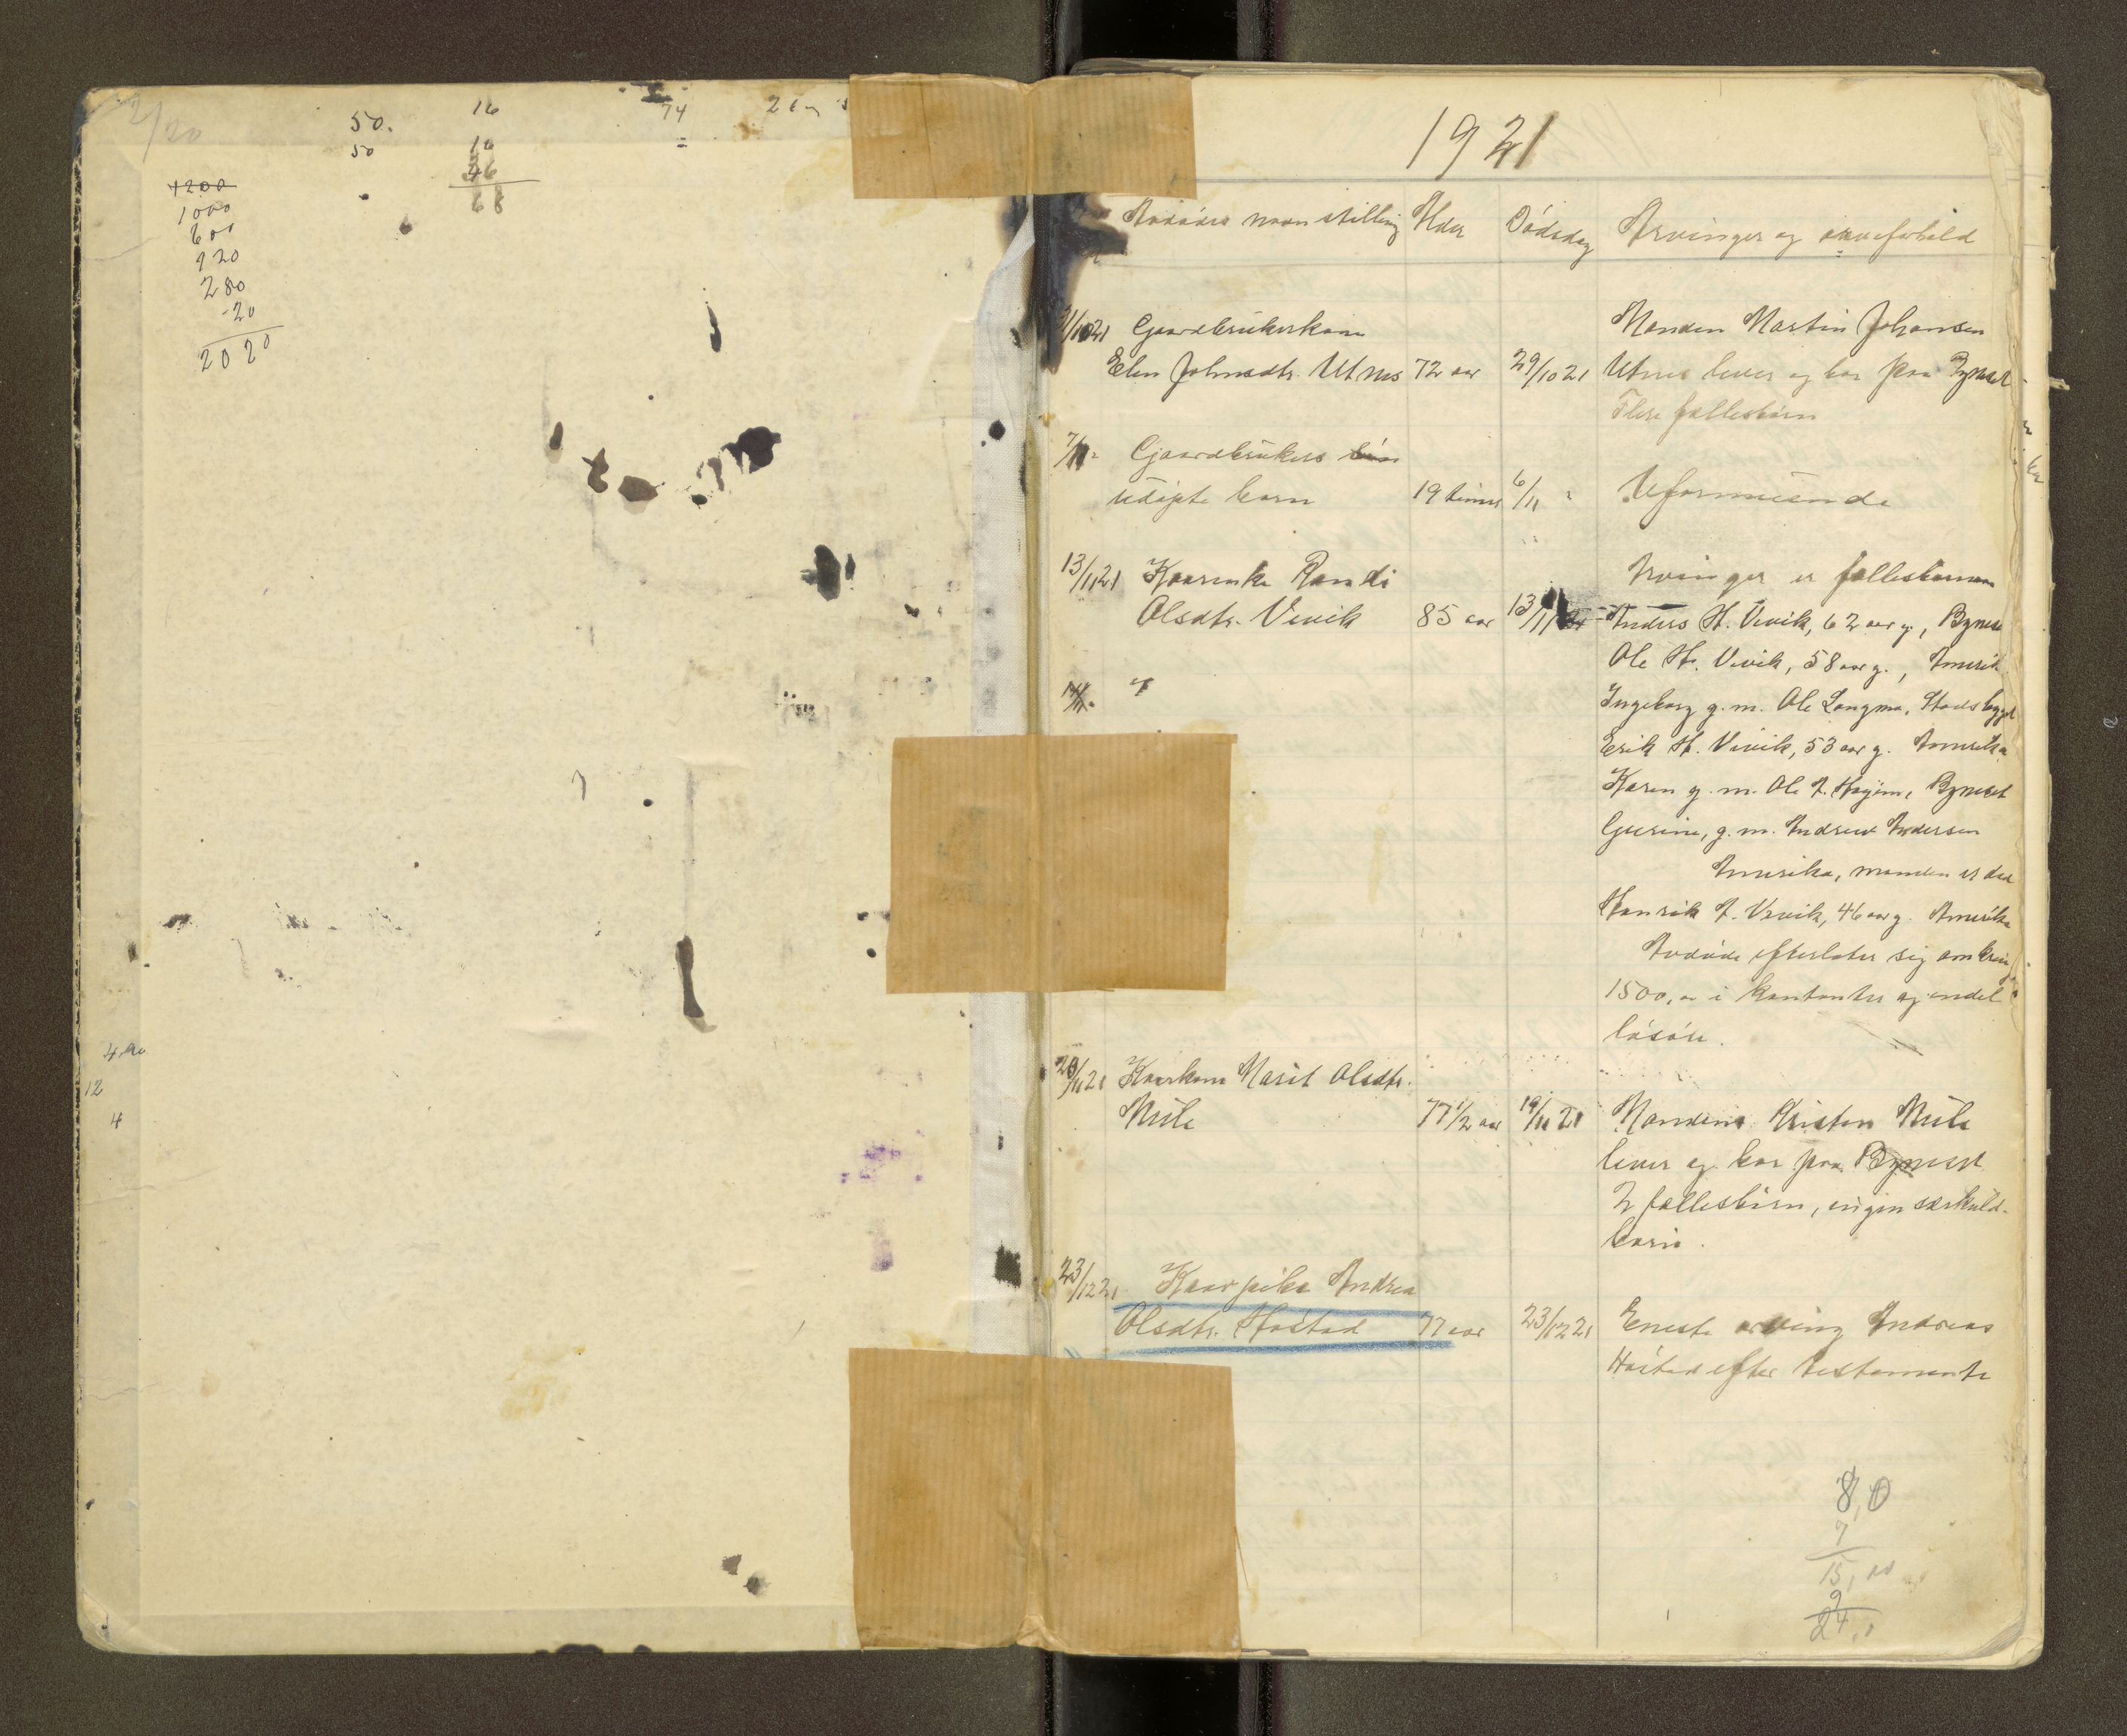 50.
50
16
10
46
68
74
=
1200
1000
600
920
280
-20
2020
12
4
1921
Avdødes navn stilling Alder Dødsdag Arvinger og arveforhold
Gaardbrukerkone
Elen Johnsdtr. Utnes 72 aar 29/10 21
Manden Martin Johansen
Utnes lever og bor paa Byneset
Flere fællesbørn
7/11 Gaardbrukers
udøpte barn 19 timer 6/11 " Uformuende
13/11 21 Kaarenke Randi
Olsdtr. Vevik 85 aar 13/11
Arvinger er fællesbarnene
Anders H. Vevik, 62 aar g., Bynese
Ole H. Vevik, 58 aar g., Amerik
Ingeborg g. m. Ole Langmo, Stadsbygd
Erik H. Vevik, 53 aar g. Amerika
Karen g. m. Ole Byneset
Gurine, g. m. Andreas Andersen
Amerika, manden er død
Henrik Vevik, 46 aar g. Amerika
Avdøde efterlater sig omkring
1500,00 i kontanter og endel
løsøre.
20/11 21 Kaarkone Marit Olsdtr.
Mule 77 1/2 aar 19/11 21
Manden Kristen Mule
lever og bor paa Byneset
2 fællesbørn, ingen særkuld-
barn.
23/12 21 Kaarpike Andrea
Olsdtr. Høstad 77 aar 23/12 21
Eneste arving Andreas
Høstad efter testamente
8,0
7
15,00
9
24,0